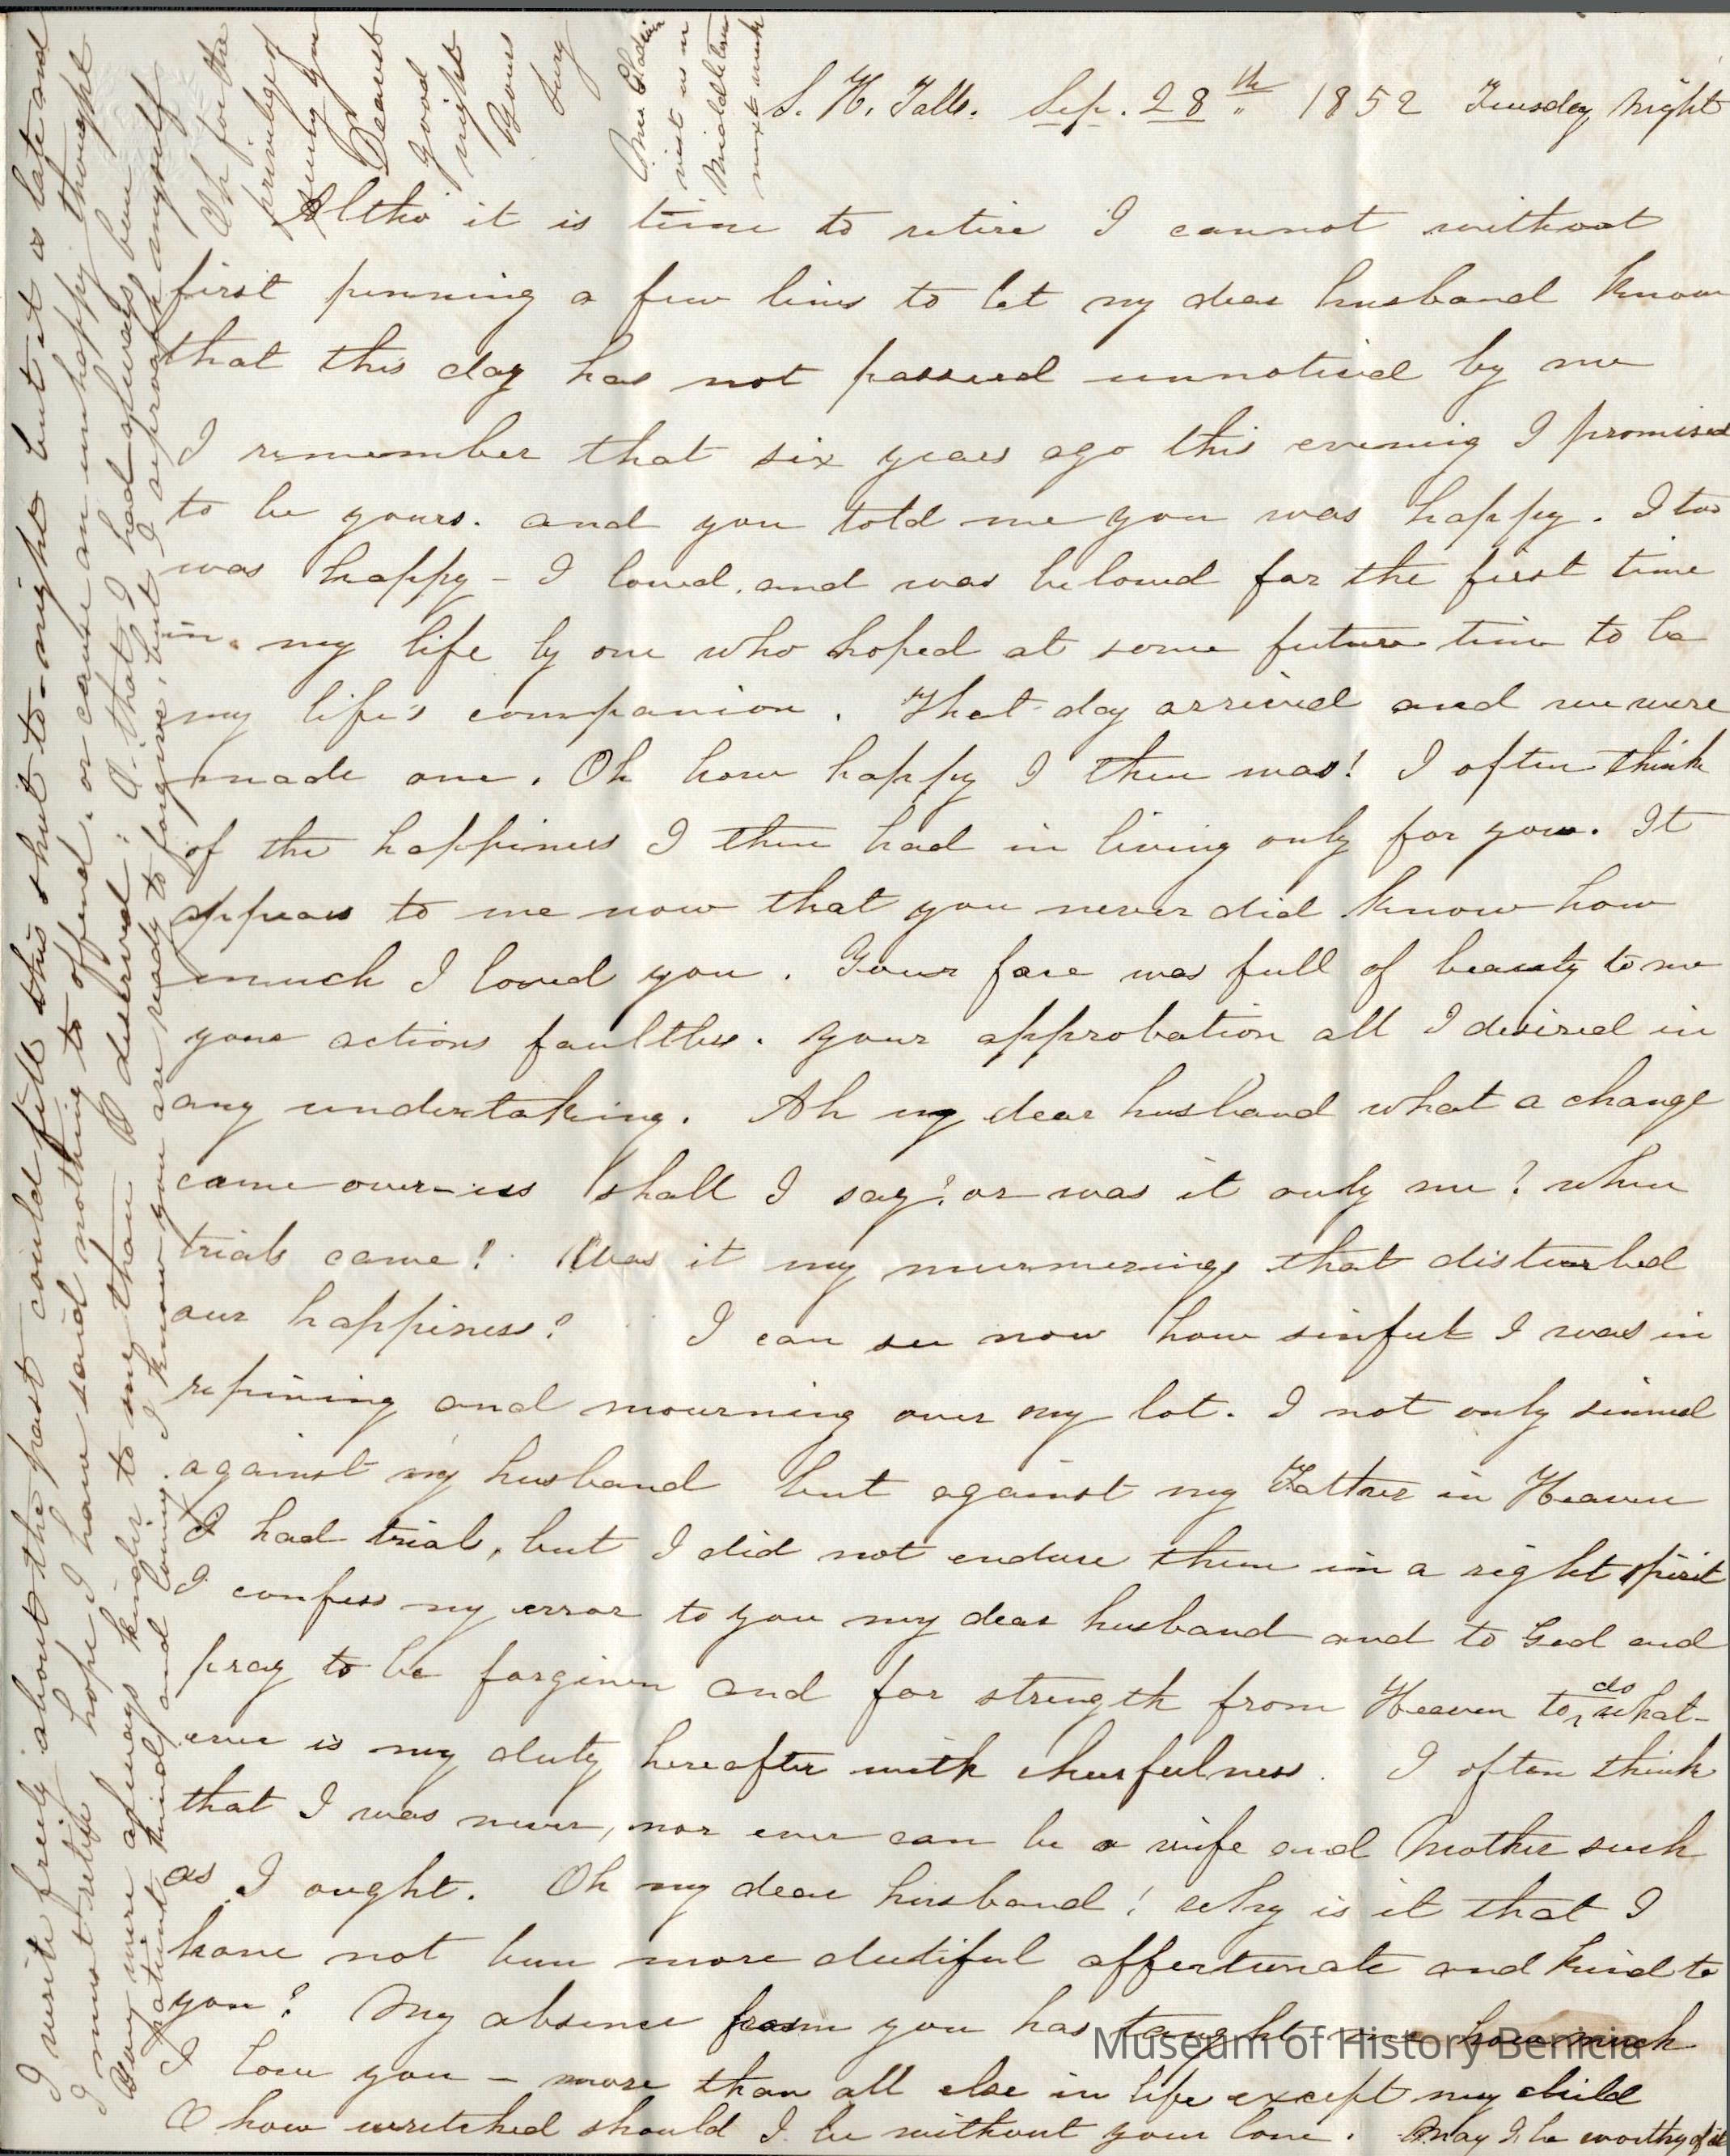 S. H. Falls. Sep. 28th 1852 Tuesday Night
Altho' it is time to retire I cannot without
first penning a few lines to let my dear husband know
that this day has not passed unnoticed by me
I remember that six years ago this evening I promised
to be yours. and you told me you was happy. I too
was happy - I loved, and was beloved for the first time
in my life by one who hoped at some future time to be
my life's companion. That day arrived and we were
made one. Oh how happy I then was! I often think
of the happiness I then had in living only for you. It
appears to me now that you never did know how
much I loved you. Your face was full of beauty to me
your actions faultless. your approbation all I desired in
any undertaking. Ah my dear husband what a change
came over us shall I say? or was it only me? when
trials came! Was it my murmerings that disturbed
our happiness? I can see now how sinful I was in
repining and mourning over my lot. I not only sinned
against my husband but against my Father in Heaven
I had trials, but I did not endure them in a right spirit
I confess my error to you my dear husband and to God and
pray to be forgiven and for strength from Heaven to do what-
ever is my duty hereafter with cheerfulness. I often think
that I was never, nor ever can be a wife and Mother such
as I ought. Oh my dear husband! why is it that I
have not been more dutiful affectionate and kind to
you? My absence from you has taught me how much
I love you - more than all else in life except my child
O how wretched should I be without your love. May I be worthy of it
I write freely about the past could fill this sheet to-night but it is late and
I must retire hope I have said nothing to offend. or cause an unhappy thought
You were always kinder to me than I deserved: O that I had always been
patient kind and loving. I know you are ready to forgive, but I reproach myself
Oh for the
privilege of
seeing you
Dearest
Good
night
Yours
Lucy
Mrs
visit us in
Middletown
next week
Museum of History Benicia